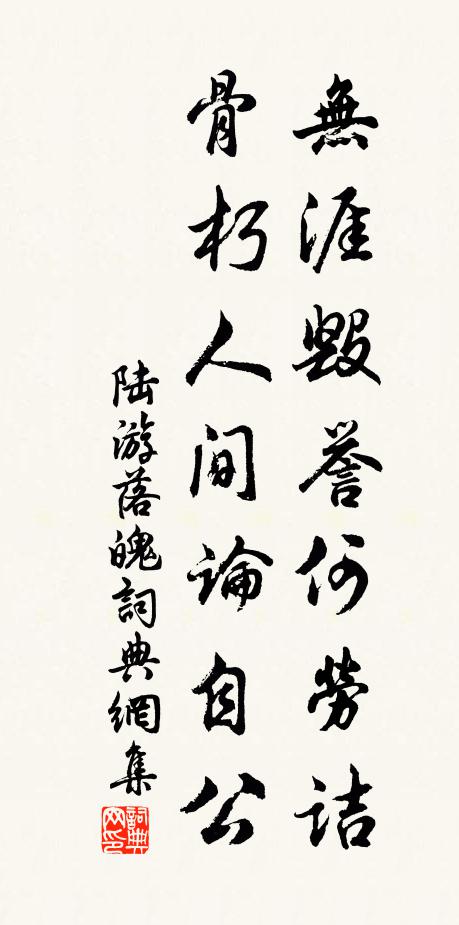 無涯毀譽何勞詰
骨朽人間論自公
陸游落魄詞典網集
詞典网印